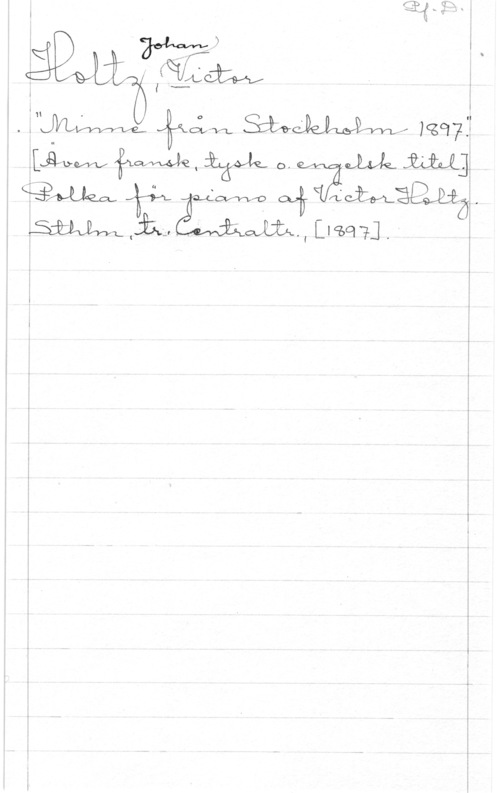 Pf. D.
Johan
Holtz, Victor
"Minne från Stockholm 1897."
[Även fransk, tysk o. engelsk titel]
Polka för piano af Victor Holtz.
Sthlm, tr. Centraltr., [1897].